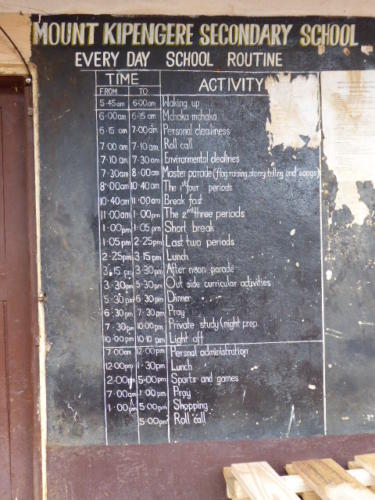 MOUNT KIPENGERE SECONDARY SCHOOL
EVERY DAY SCHOOL ROUTINE
TIME ACTIVITY
FROM TO
5:45am 6:00am Waking up
6:00am 6:15am Mchaka mchaka
6:15am 7:00am Personal cleanliness
7:00am 7:10am Roll call
7:10am 7:30am Environmental cleanlines
7:30am 8:00am Master parade (flag raising, story telling and songs)
8:00am 10:40am The 1st four periods
10:40am 11:00am Break fast
11:00am 1:00pm The 2nd three periods
1:00pm 1:05pm Short break
1:05pm 2:25pm Last two periods
2:25pm 3:15pm Lunch
3:15pm 3:30pm After noon parade
3:30pm 5:30pm Out side curricular activities
5:30pm 6:30pm Dinner
6:30pm 7:30pm Pray
7:30pm 10:00pm Private study (night prep
10:00pm 10:10pm Light off
7:00am 12:00pm Personal administration
12:00pm 1:30pm Lunch
2:00pm 5:00pm Sports and games
7:00am 1:00pm Pray
1:00pm 5:00pm Shopping
5:00pm Roll call